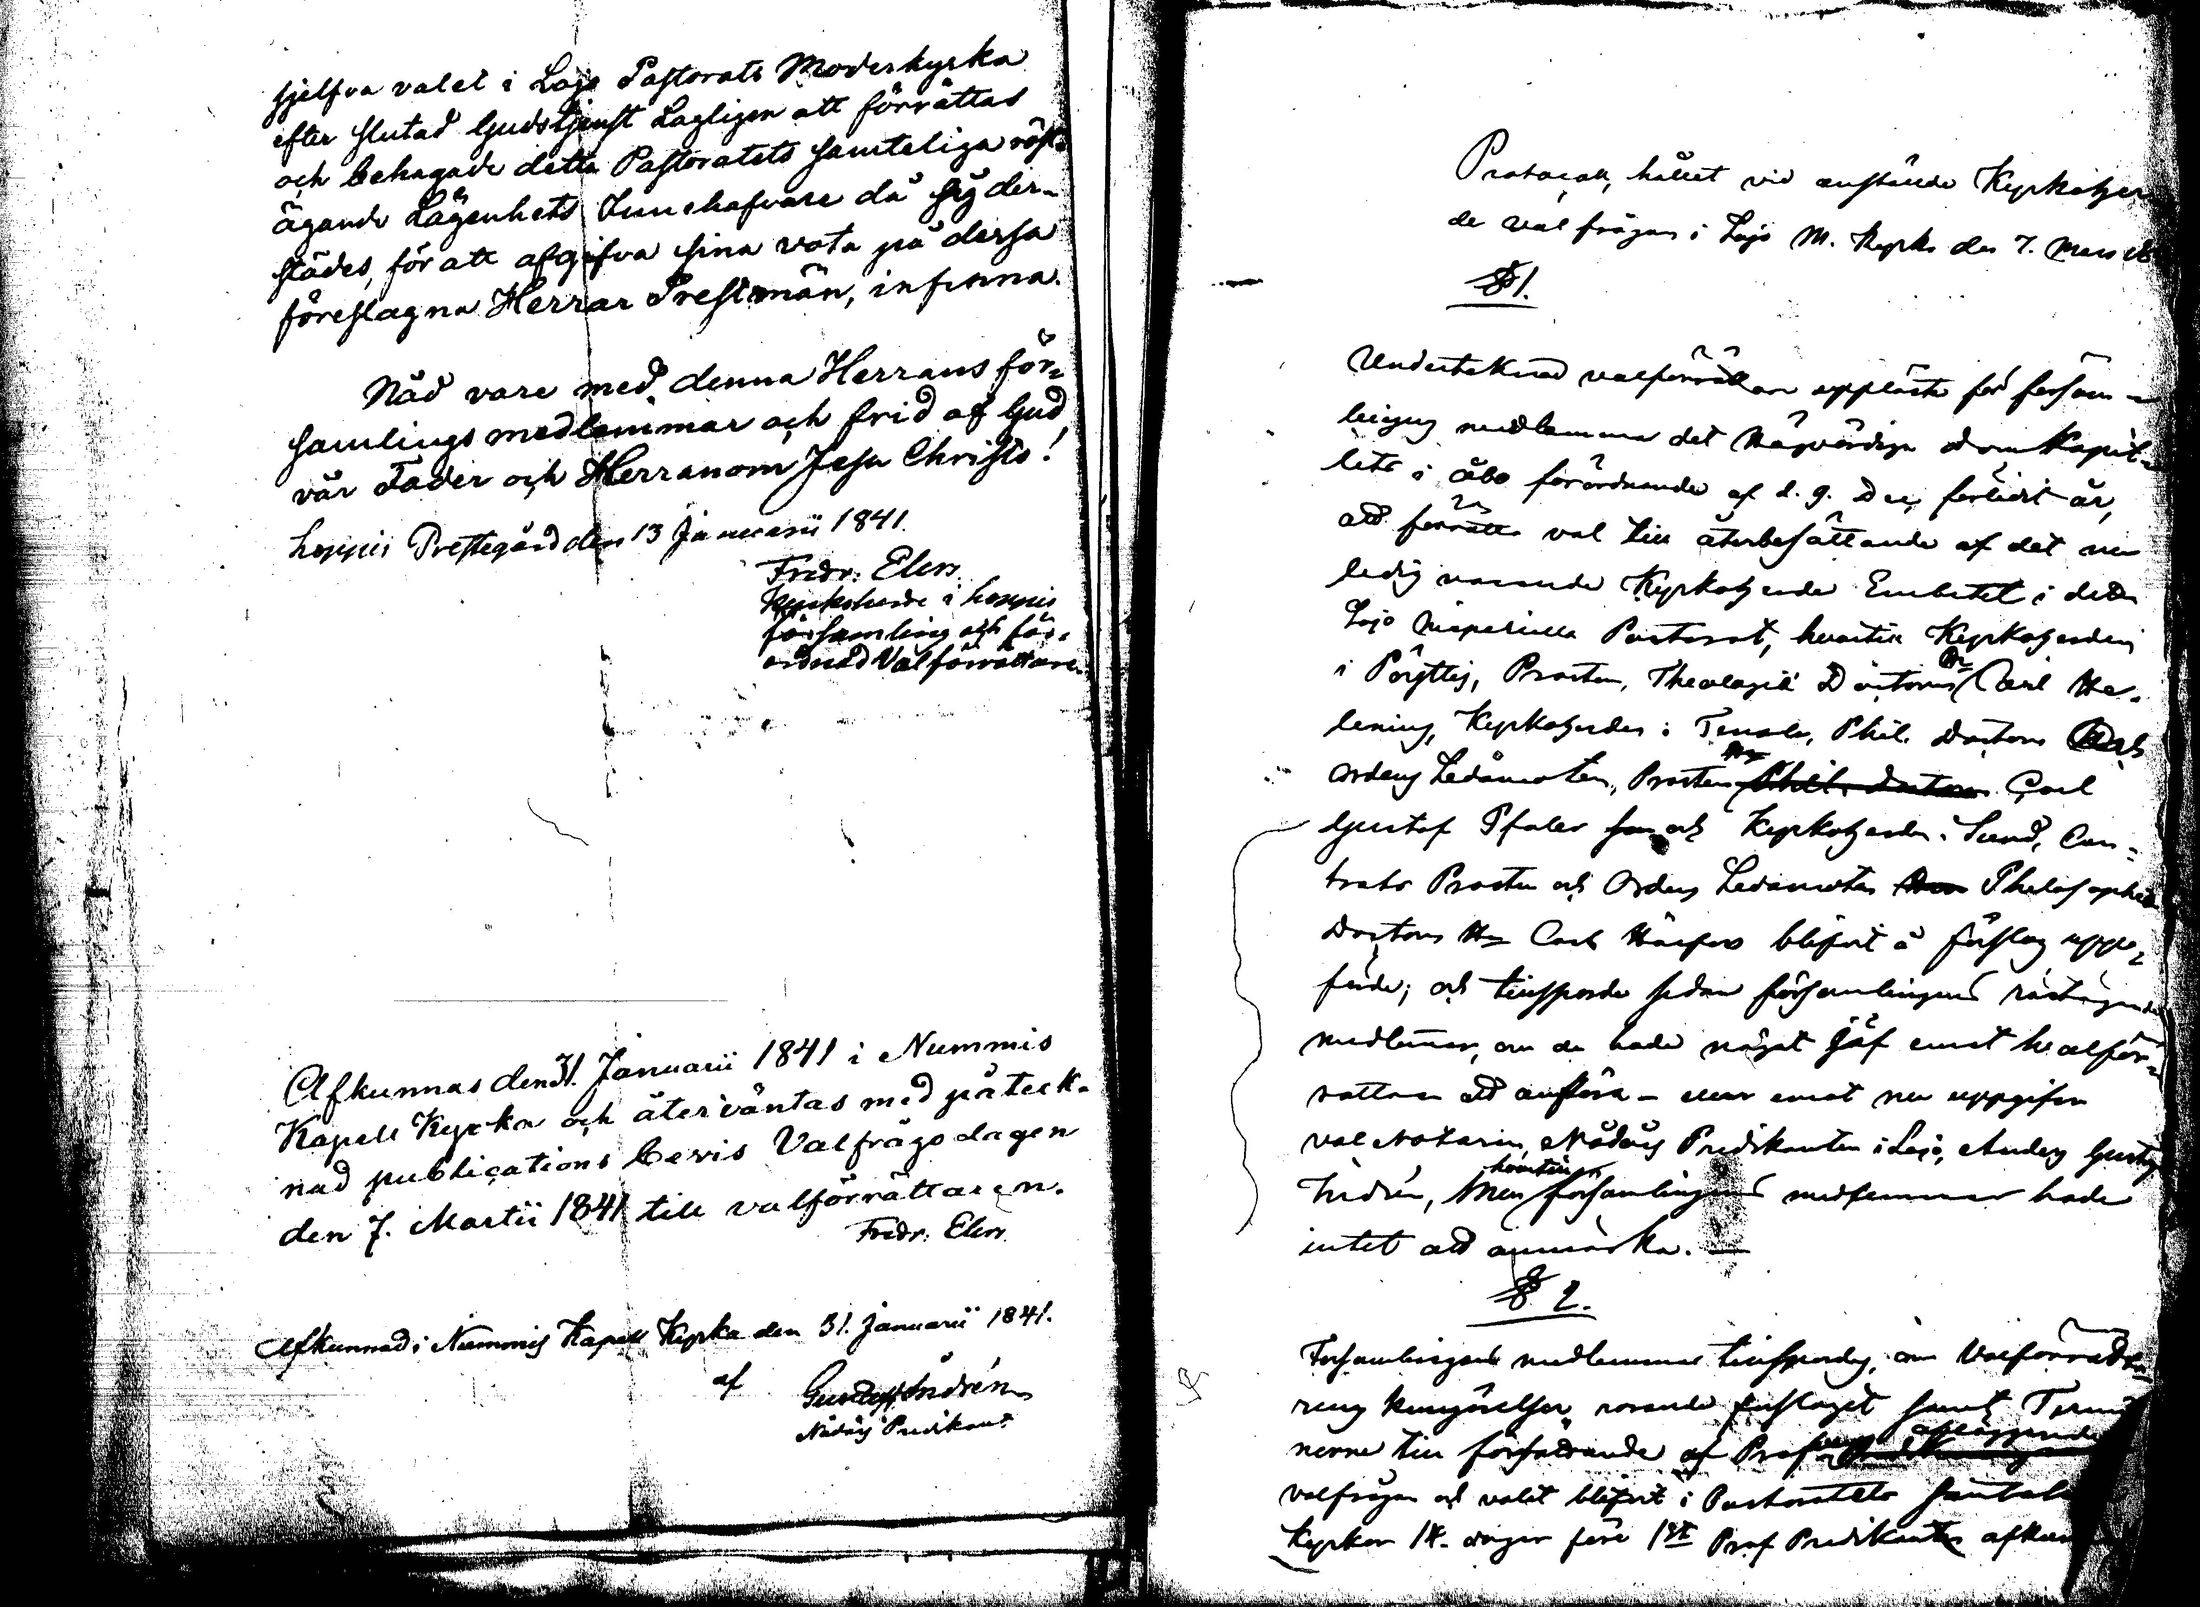 sjelfva valet i Lojo Pastorats Moderkyrka
efter slutad Gudstjenst Lagligen att förrättas
och behagade detta Pastoratets samteliga röst-
ägande Lägenhets Innehafvare då sig der-
städes, för att afgifva sina vota på dessa
föreslagna Herrar Prestmän, infinna.
Nåd vare med denna Herrans för-
samlings medlemmar och frid af Gud
vår Fader och Herranom Jesu Christo!
Loppis Prestegård den 13 Januarii 1841.
Fredr: Elers
Kyrkoherde i Loppis
församling och för-
ordnad Valförrättare.
Afkunnas den 31. Januarii 1841 i Nummis
Kapell Kyrka och återväntas med påteck-
nad publications bevis Valfrågodagen
den 7. Martii 1841 till valförrättaren.
Fredr: Elers
Afkunnad i Nummis Kapell Kyrka den 31. Januarii 1841.
af Gustaf Indrén
Nådårs Predikant
Protocoll, hållet vid anstälde Kyrkoher
de val frågan i Lojo M. Kyrka den 7. Mars
§ 1.
Undertecknad valförrättare uppläste för försam-
lingens medlemmar det Högvördiga DomKapit-
lets i Åbo förordnande af d. 9. Dec. förledit år,
att förrätta val till återbesättande af det nu
ledig varande Kyrkoherde Embetet i detta
Lojo Imperiella Pastorat, hvartill Kyrkoherden
i Pöyttis, Prosten, Theologiæ Doctoren Hr Carl He-
lenius, Kyrkoherden i Tenala, Phil. Doctoren och
Ordens Ledamoten, Prosten Hr Phil. Doctoren Carl
Gustaf Pfaler och Kyrkoherden i Sund, Con-
tracts Prosten och Ordens Ledamoten Philosophiæ
Doctoren Hr Carl blifvit å förslag uppe-
förde; och tillsporde sedan församlingens röstägande
medlemmar, om de hade något jäf emot valför-
rättaren att anföra - eller emot nu uppgifven
val Notarien, Nådårs Predikanten i Lojo, Anders Gustaf
Indrén, hvartill Men församlingens medlemmar hade
intet att anmärka. —
§ 2.
Församlingens medlemmar tillspordes, om Valförrätta-
rens kungörelser rörande förslaget samt Termi
nerne till författande af Prof afläggande
valfrågan och valet blifvit i Pastoratets samtel
Kyrkor 14. dagar före 1sta Prof Predikanten afkun